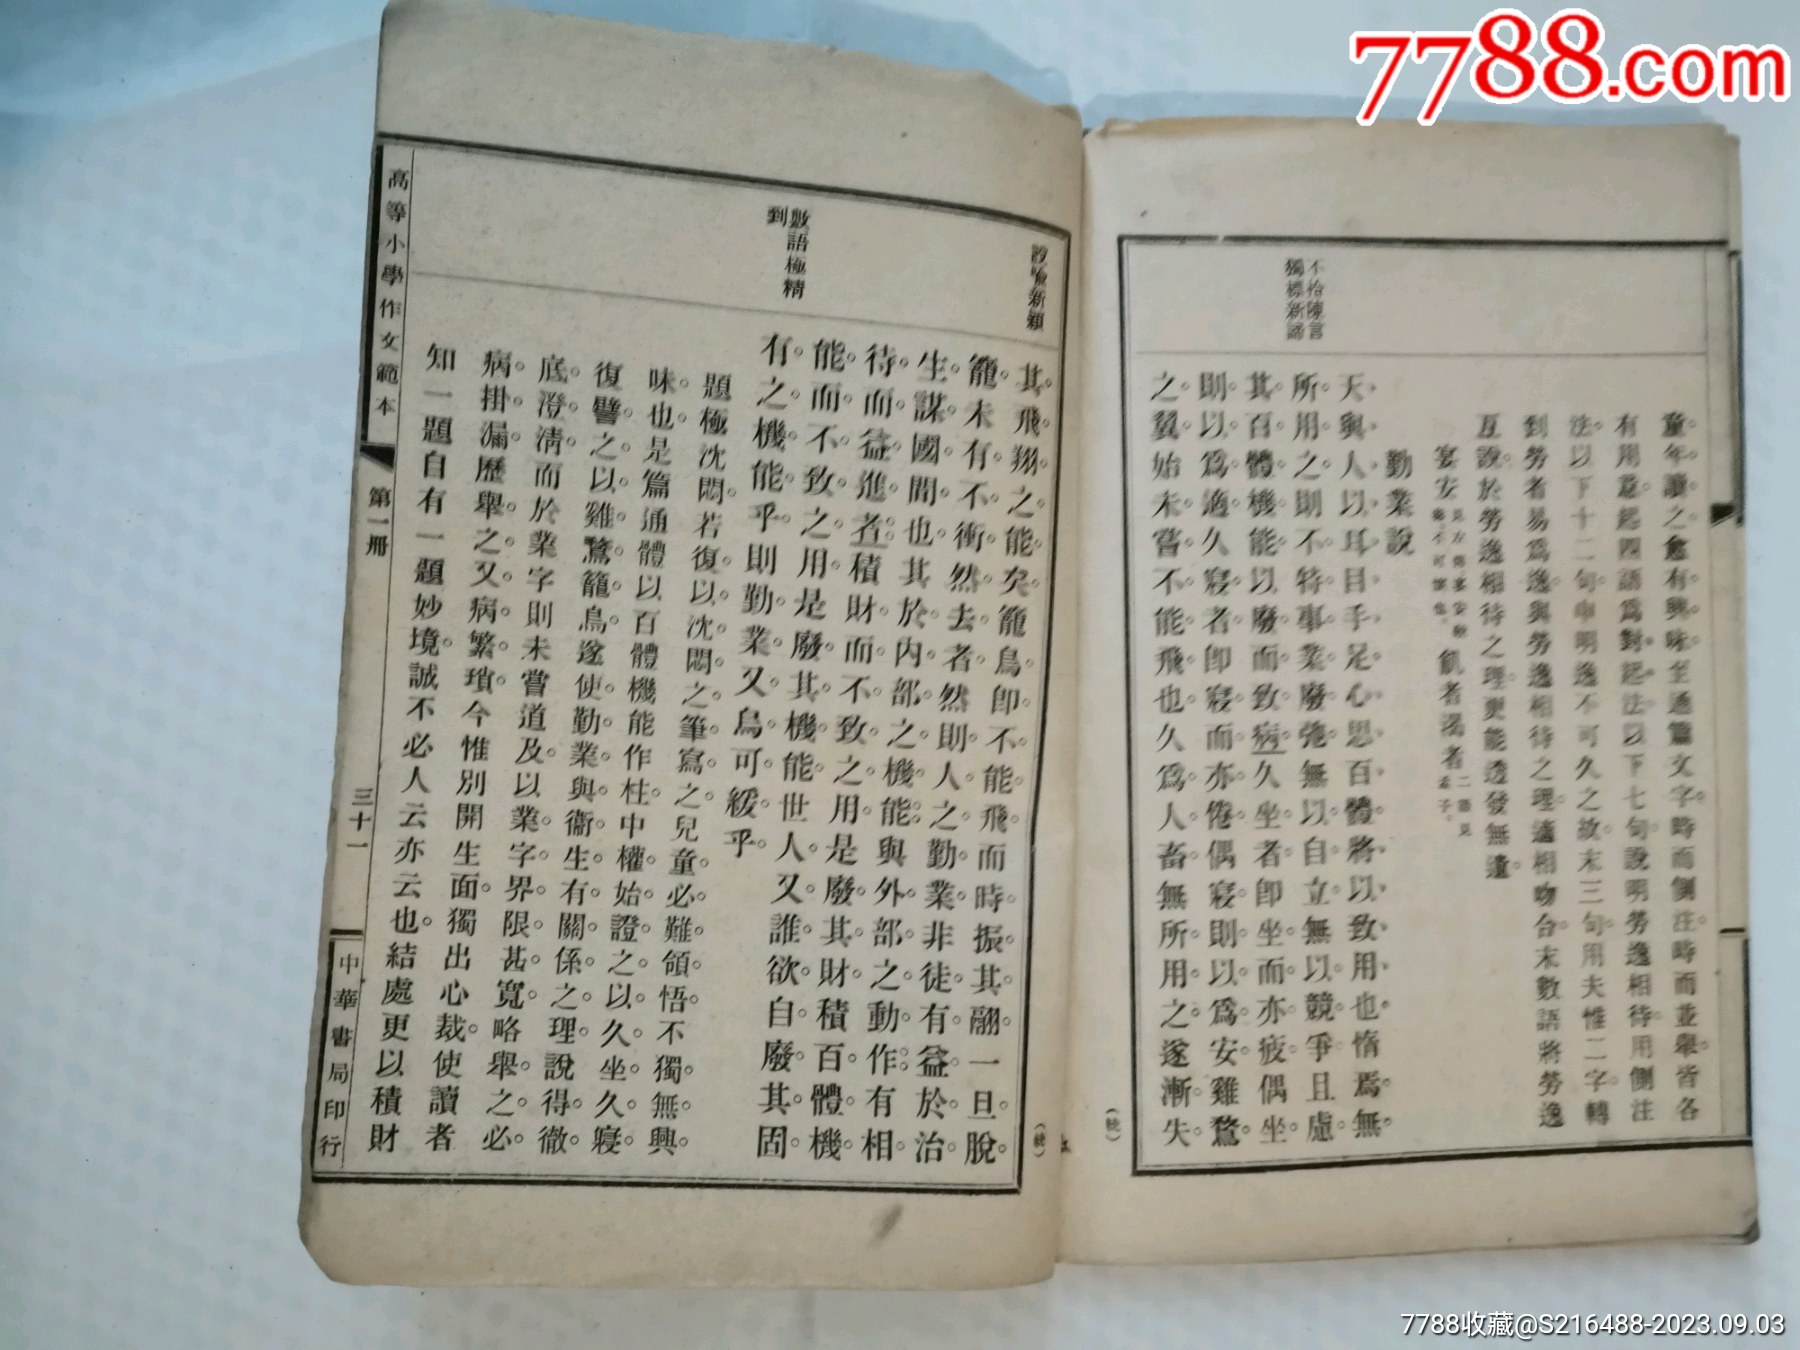 7788.com
不拾陳言
獨標新諦
童年讀之愈有興味至通篇文字時而側注時而並舉皆各
有用意起四語爲對起法以下七句說明勞逸相待用側注
法以下十二句申明逸不可久之故末三句用夫惟二字轉
到勞者易爲逸與勞逸相待之理適相吻合末數語將勞逸
互說於勞逸相待之理更能透發無遺
宴安 見左傳宴安酖毒不可懷也 飢者渴者 二語見孟子
勤業說
天與人以耳目手足心思百體將以致用也惰焉無
所用之則不特事業廢弛無以自立無以競爭且慮
其百體機能以廢而致病久坐者卽坐而亦疲偶坐
則以爲適久寢者卽寢而亦倦偶寢則以爲安雞鶩
之翼始未嘗不能飛也久爲人畜無所用之遂漸失
(統)
設喻新穎
數語極精
到
其飛翔之能矣籠鳥卽不能飛而時振其翮一旦脫
籠未有不衝然去者然則人之勤業非徒有益於治
生謀國間也其於內部之機能與外部之動作有相
待而益進者積財而不致之用是廢其財積百體機
能而不致之用是廢其機能世人又誰欲自廢其固
有之機能乎則勤業又烏可緩乎
題極沈悶若復以沈悶之筆寫之兒童必難領悟不獨無興
味也是篇通體以百體機能作柱中權始證之以久坐久寢
復譬之以雞鶩籠鳥遂使勤業與衞生有關係之理說得徹
底澄淸而於業字則未嘗道及以業字界限甚寬略舉之必
病掛漏歷舉之又病繁瑣今惟別開生面獨出心裁使讀者
知一題自有一題妙境誠不必人云亦云也結處更以積財
(統)
高等小學作文範本
第一冊
三十一
中華書局印行
7788收藏@S216488-2023.09.03